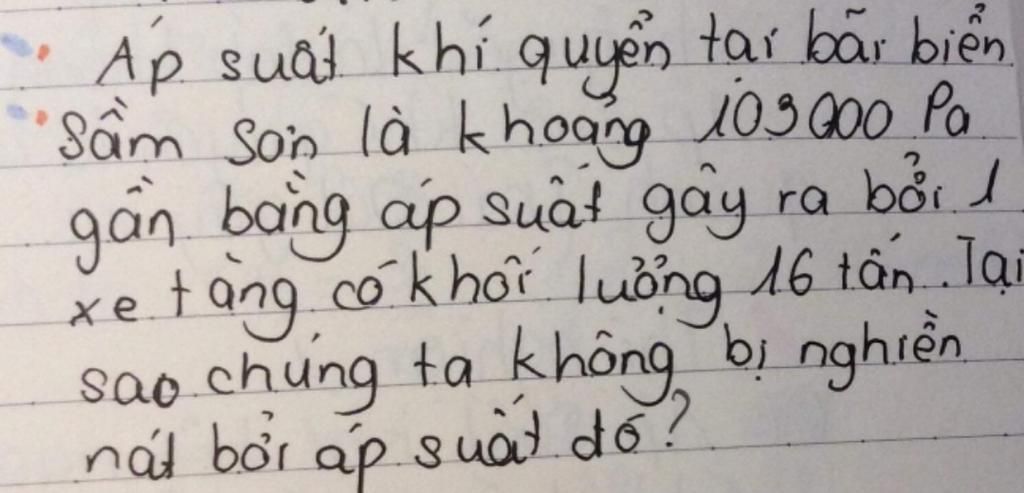 Áp suất khí quyển tại bãi biển
Sầm Sơn là khoảng 103000 Pa
gần bằng áp suất gây ra bởi 1
xe tăng có khối lượng 16 tấn. Tại
sao chúng ta không bị nghiền
nát bởi áp suất đó?